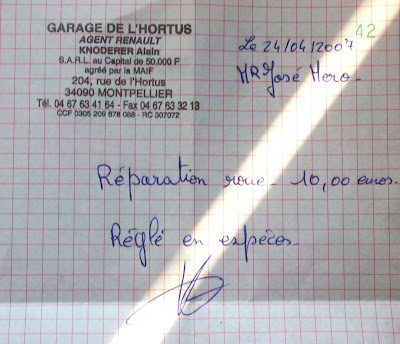 GARAGE DE L'HORTUS
AGENT RENAULT
KNODERER Alain
S.A.R.L. au Capital de 50.000 F
agréé par la MAIF
204, rue de l'Hortus
34090 MONTPELLIER
Tél. 04 67 63 41 64 - Fax 04 67 63 32 13
CCF 0305 209 678 068 - RC 307072
42
Le 24/04/2007
MR José Hero.
Réparation roue - 10,00 euros.
Réglé en espèces.